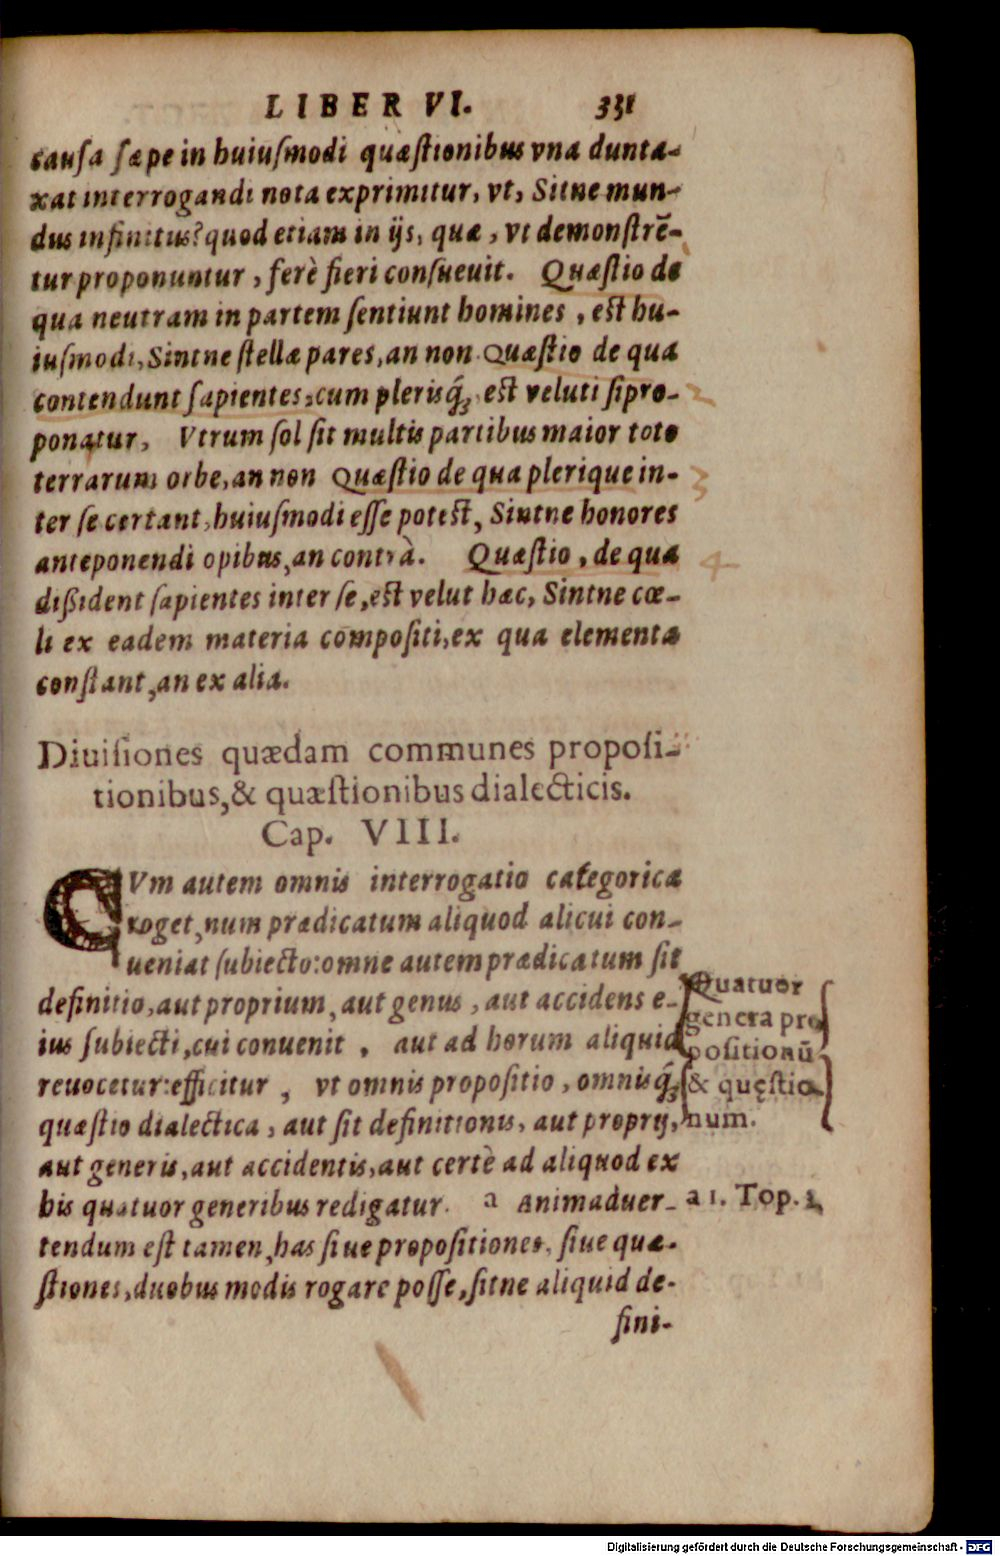 LIBER VI. 331
causa sæpe in huiuſmodi quæſtionibus vna dunta-
xat interrogandi nota exprimitur, vt, Sitne mun-
dus infinitus? quod etiam in ijs, quæ, vt demonſtrē-
tur proponuntur, ferè fieri conſueuit. Quæſtio de
qua neutram in partem ſentiunt homines, eſt hu-
iuſmodi, Sintne ſtellæ pares, an non. Quæſtio de qua
contendunt ſapientes, cum pleriſq́; eſt veluti ſi pro-
ponatur, Vtrum ſol ſit multis partibus maior toto
terrarum orbe, an non Quæſtio de qua plerique in-
ter ſe certant, huiuſmodi eſſe poteſt, Sintne honores
anteponendi opibus, an contrà. Quæſtio, de qua
dißident ſapientes inter ſe, eſt velut hæc, Sintne cœ-
li ex eadem materia compoſiti, ex qua elementa
conſtant, an ex alia.
Diuiſiones quædam communes propoſi-
tionibus, & quæſtionibus dialecticis.
Cap. VIII.
CVm autem omnis interrogatio categorica
roget, num prædicatum aliquod alicui con-
ueniat ſubiecto: omne autem prædicatum ſit
definitio, aut proprium, aut genus, aut accidens e-
ius ſubiecti, cui conuenit, aut ad horum aliquid
reuocetur: efficitur, vt omnis propoſitio, omniſq́;
quæſtio dialectica, aut ſit definitionis, aut proprij,
aut generis, aut accidentis, aut certè ad aliquod ex
his quatuor generibus redigatur. a Animaduer-
tendum eſt tamen, has ſiue propoſitiones, ſiue quæ-
ſtiones, duobus modis rogare poſſe, ſitne aliquid de-
fini-
Quatuor
genera pro
poſitionū
& quęſtio
num.
a 1. Top. 3
2
3
4
Digitalisierung gefördert durch die Deutsche Forschungsgemeinschaft - DFG